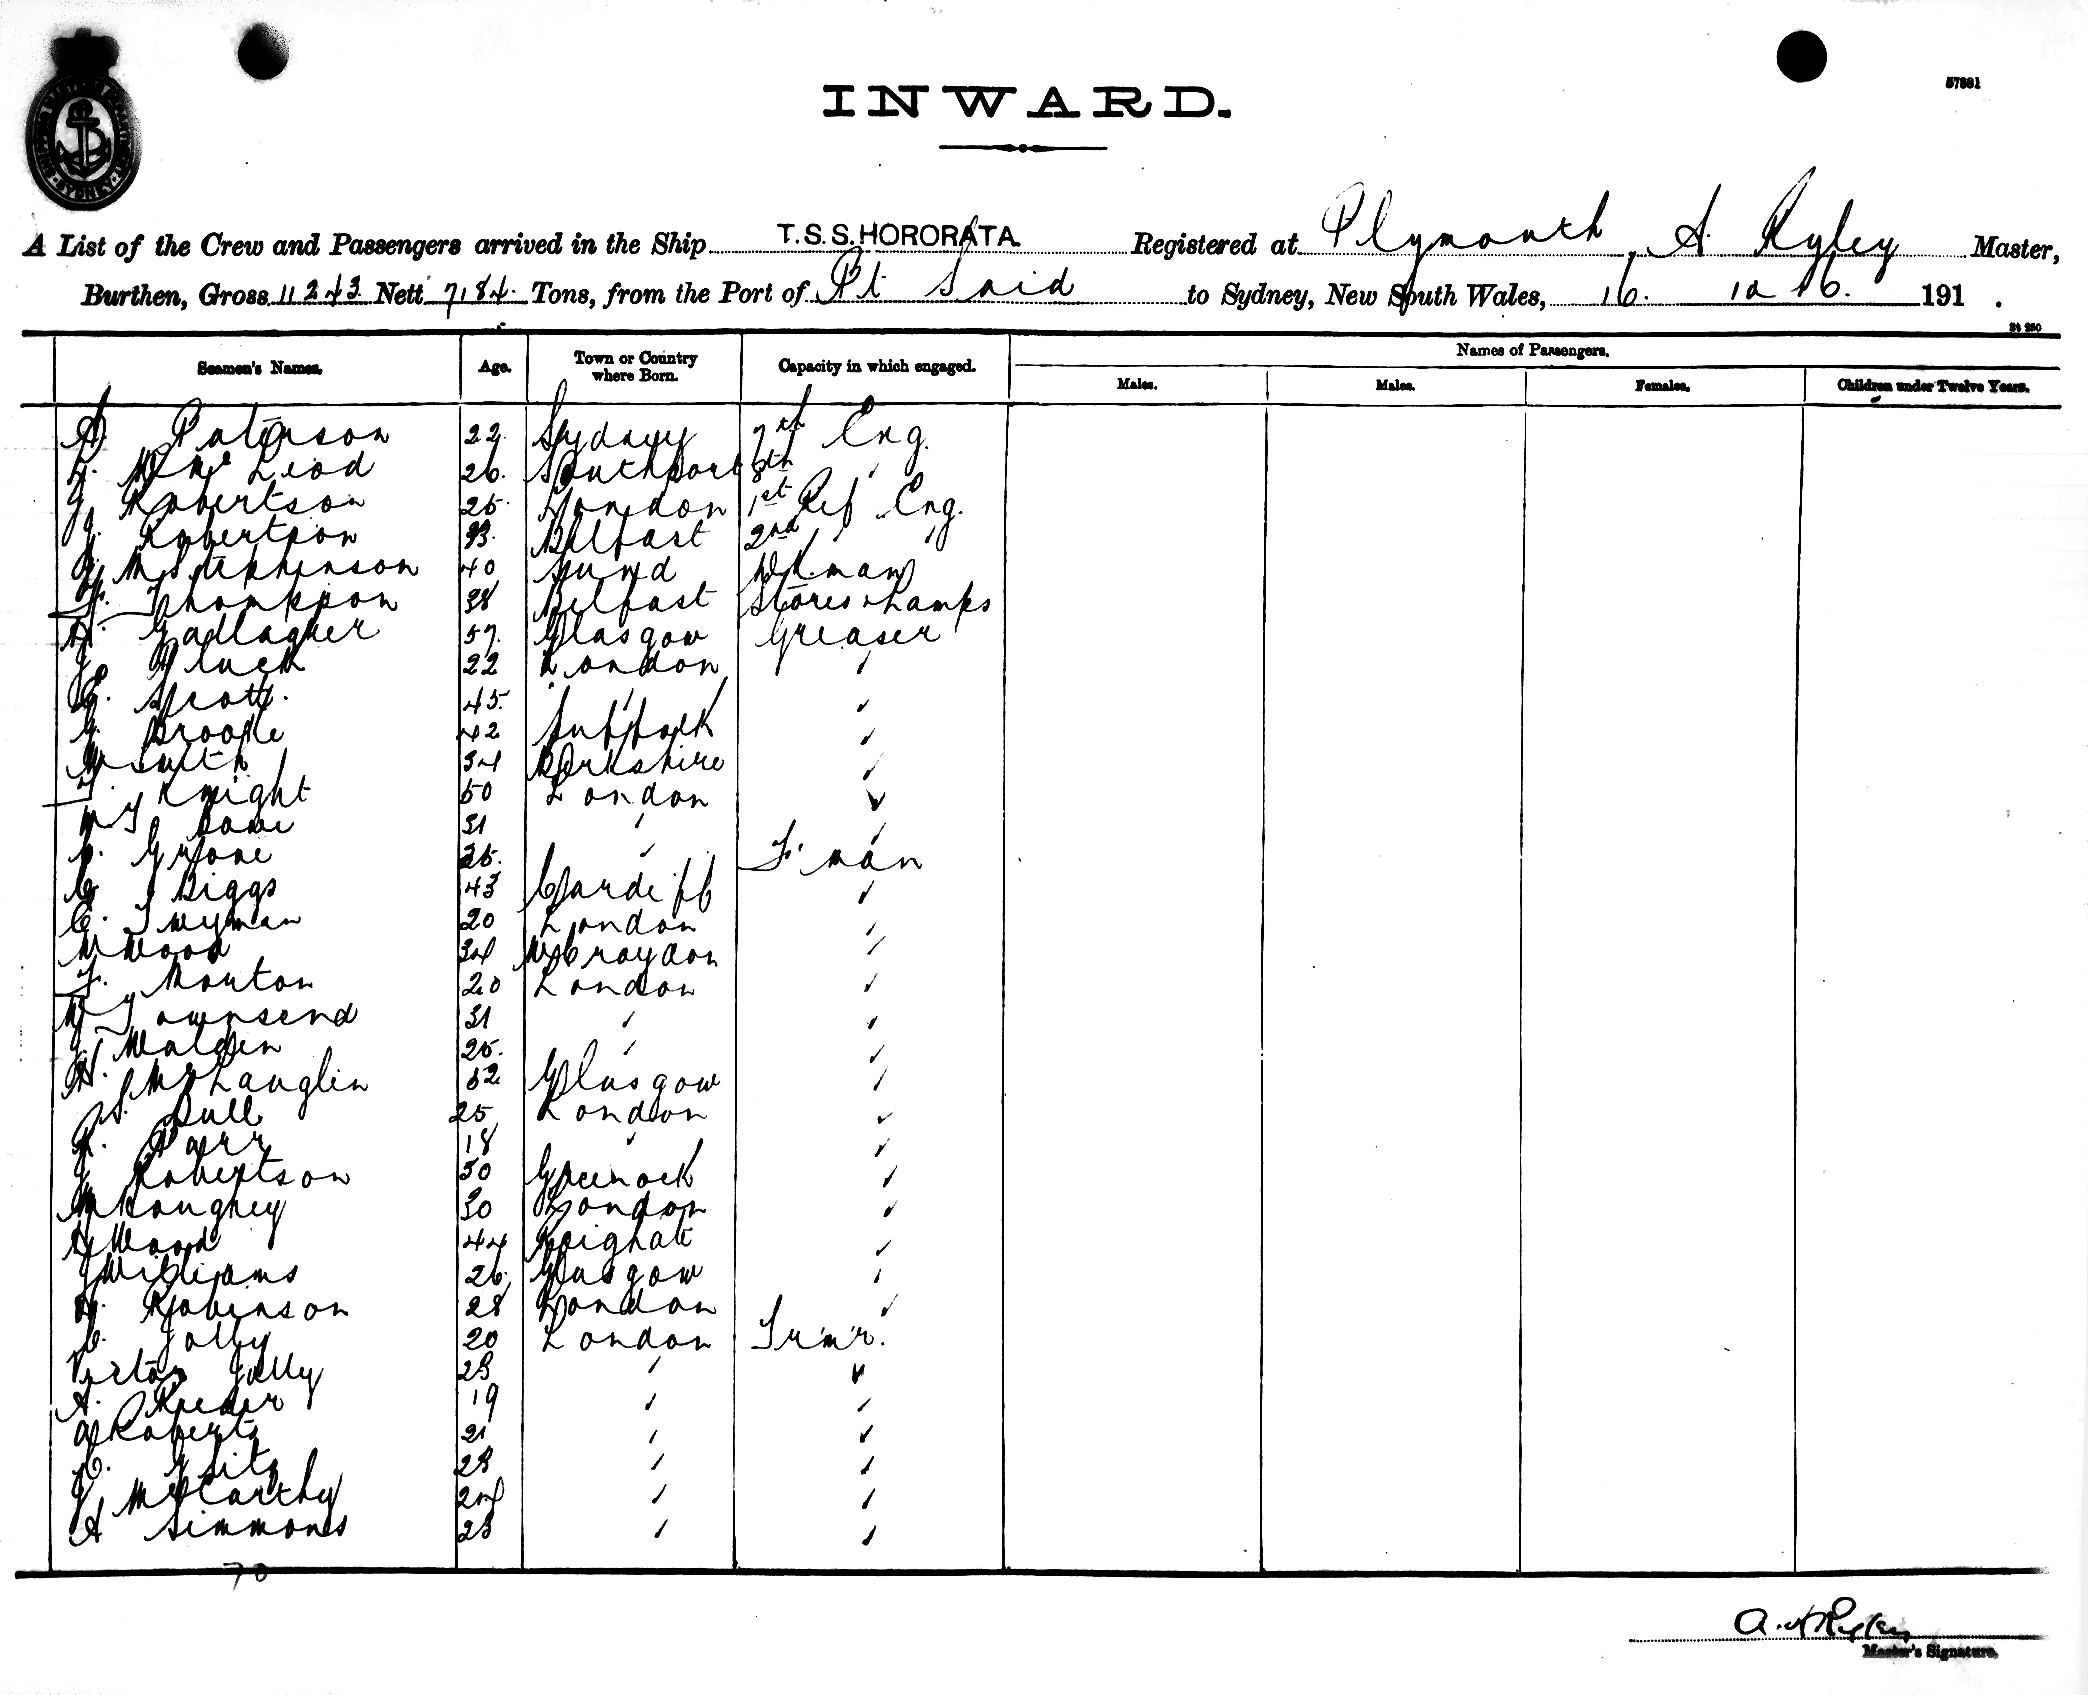 57381
INWARD.
A List of the Crew and Passengers arrived in the Ship T.S.S. HORORATA. Registered at Plymouth, A. Ryley Master,
Burthen, Gross 11243 Nett 7184. Tons, from the Port of Pt Said to Sydney, New South Wales, 16. 10 16. 191 .
Seamen's Names. Age. Town or Country where Born. Capacity in which engaged. Names of Passengers.
Males. Males. Females. Children under Twelve Years.
Paterson 22. Sydney 7th Eng.
McLeod 26. Southport 8th "
Robertson 25. London 1st Ref Eng.
J. Robertson 33. Belfast 2nd " "
Stephenson 40 Dkman
Thompson 38 Belfast Stores & Lamps
Gallagher 57. Glasgow Greaser
Pluck 22 London "
Scott. 45. " "
Brooke 42 Suffolk "
Smith 34 Yorkshire "
T. Knight 50 London "
31 " "
25. " F'man
Biggs 43 Cardiff "
C. Twyman 20 London "
W Wood 34 W Croydon "
F. Morton 20 London "
W Townsend 31 " "
Walden 25. " "
H. McLauglin 52 Glasgow "
Bull 25 London "
Parr 18 " "
J Robertson 30 Greenock "
30 London "
H Wood 44 Reigate "
J Williams 26 Glasgow "
Robinson 28 London "
C. Jolly 20 London Trm'r.
Victor Jolly 23 " "
A. 19 " "
Roberts 21 " "
28 " "
J McCarthy 24 " "
A Simmons 23 " "
70
Master's Signature.